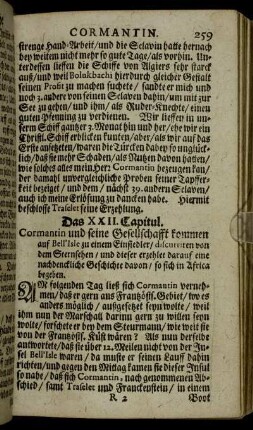 CORMANTIN. 259
strenge Hand-Arbeit/ und die Sclavin hatte hernach
bey weitem nicht mehr so gute Tage/ als vorhin. Un-
terdessen lieffen die Schiffe von Algiers sehr starck
auß/ und weil Bolukbachi hierdurch gleicher Gestalt
seinen Profit zu machen suchete/ sandte er mich und
noch 3. andere von seinen Sclaven dahin/ um mit zur
See zu gehen/ und ihm/ als Ruder-Knechte/ einen
guten Pfenning zu verdienen. Wir lieffen in un-
serm Schiff gantzer 3. Monat hin und her/ ehe wir ein
Christl. Schiff erblicken kunten/ aber/ als wir auf das
Erste ansetzeten/ waren die Türcken dabey so unglück-
lich/ daß sie mehr Schaden/ als Nutzen davon hatten/
wie solches alles mein Herr Cormantin bezeugen kan/
der damahl unvergleichliche Proben seiner Tapffer-
keit bezeiget/ und dem/ nächst 39. andern Sclaven/
auch ich meine Erlösung zu dancken habe. Hiermit
beschlosse Trafelet seine Erzehlung.
Das XXII. Capitul.
Cormantin und seine Gesellschafft kommen
auf Bell'Isle zu einem Einsiedler/ discuriren von
dem Sternsehen/ und dieser erzehlet darauf eine
nachdenckliche Geschichte davon/ so sich in Africa
begeben.
DEs folgenden Tag ließ sich Cormantin verneh-
men/ daß er gern aus Frantzösis. Gebiet/ wo es
anders möglich/ außgesetzet seyn wolte/ weil
ihm nun der Marschall darin gern zu willen seyn
wolte/ forschete er bey dem Steurmann/ wie weit sie
von der Frantzösis. Küst wären? Als nun derselbe
antwortete/ daß sie über 12. Meilen nicht von der In-
sel Bell'Isle waren/ da muste er seinen Lauff dahin
richten/ und gegen den Mittag kamen sie dieser Insul
so nahe/ daß sich Cormantin, nach genommenen Ab-
schied/ samt Trafelet und Franckenstein/ in einem
R 2 Boot